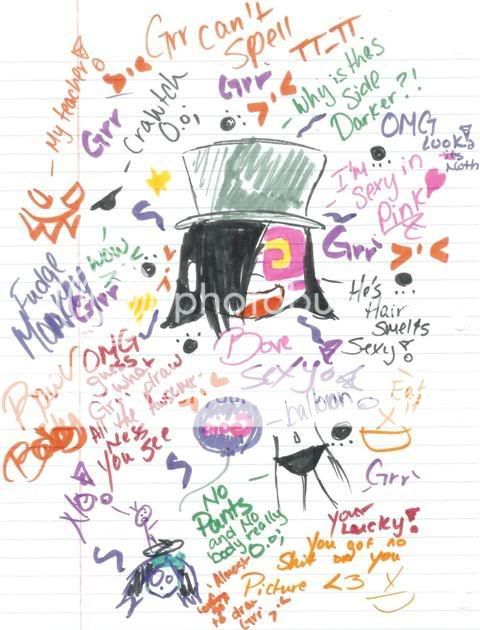 Grr can't
spell
TT_TT
My teacher
Grr
Grr
crawtch
0.o;
Why is this
side
Darker?!
OMG
Look
its
Moth
I'm
sexy in
Pink
Grr
wow
Fudge
Monkey
Grr
photobu
He's
Hair
Smells
Sexy!
OMG
guess
what
Grr draw
All the Awesome
-ness
you see
Dove
Sexy
balloon
Eat
it
NO
Grr
No
Pants
and No
body really
0.o;
Your
Lucky!
You got no
Shit on you
Picture <3
Almost
to draw
Grr